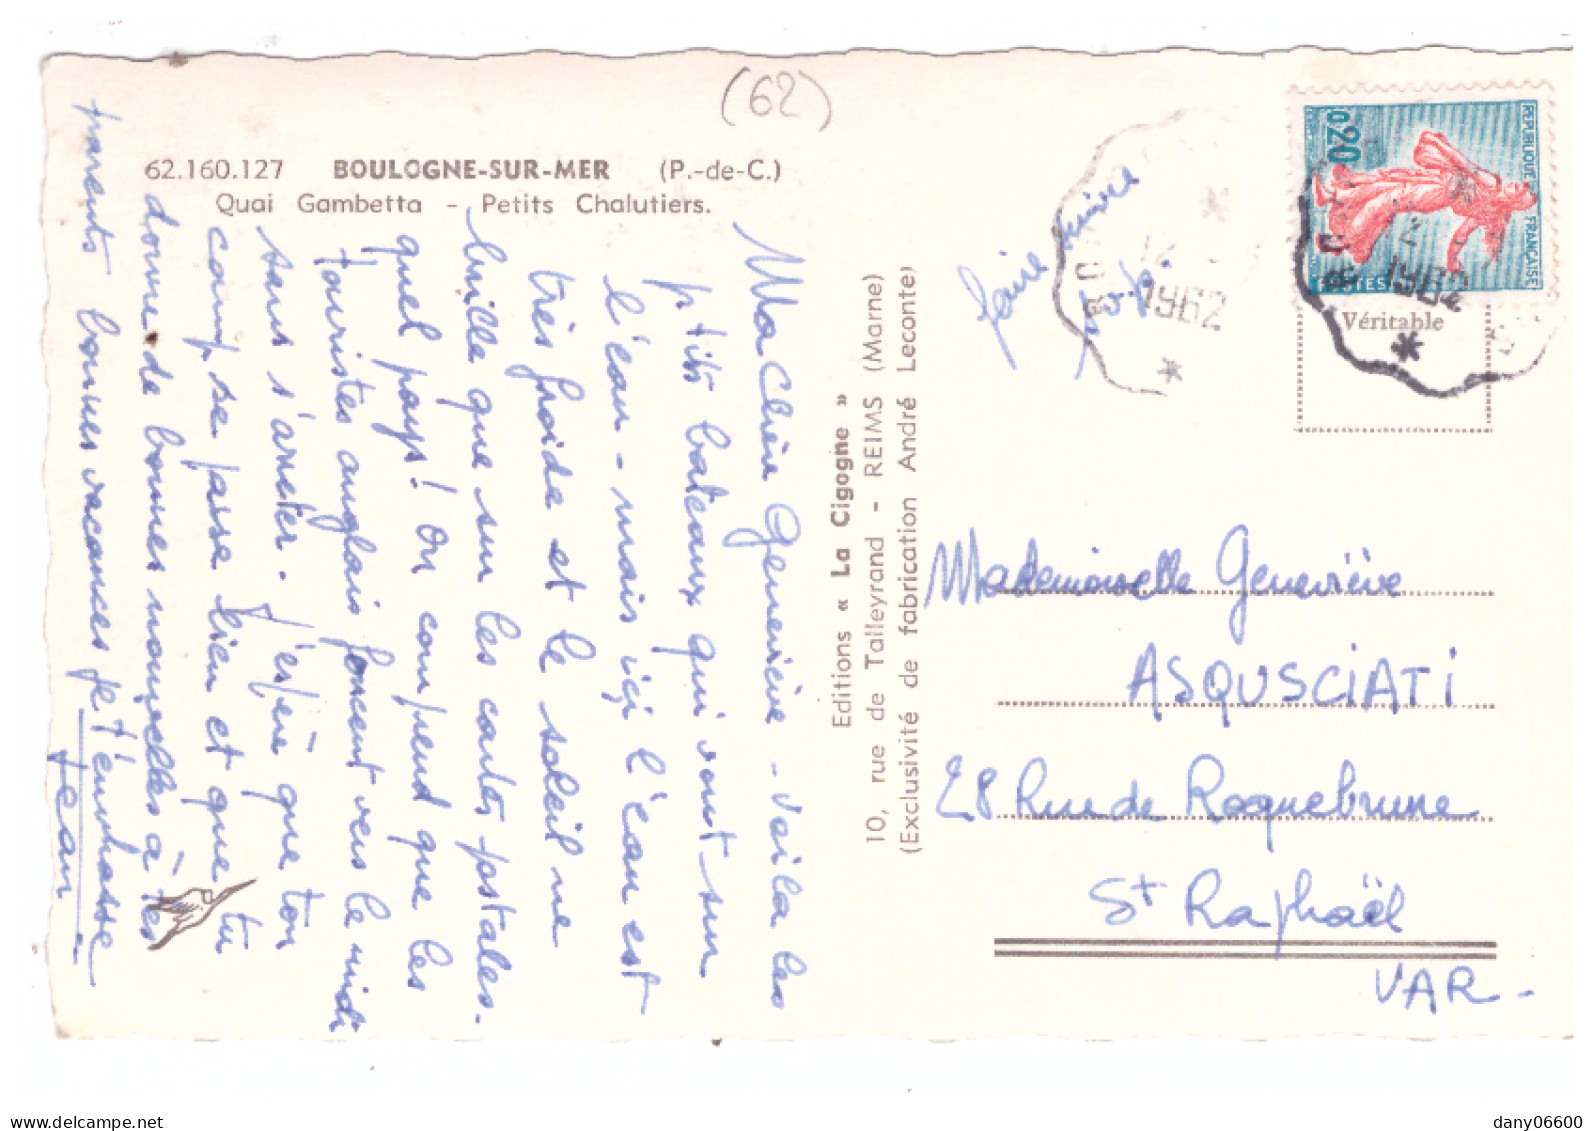 (62)
62.160.127 BOULOGNE-SUR-MER (P.-de-C.)
Quai Gambetta - Petits Chalutiers.
Ma Chère Geneviève - Voilà les
p'tits bateaux qui vont sur
l'eau - mais içi l'eau est
très froide et le soleil ne
brille que sur les cartes postales.
quel pays! On comprend que les
touristes anglais foncent vers le midi
sans s'arrêter. J'espère que ton
camp se passe bien et que tu
donne de bonnes nouvelles à tes
parents bonnes vacances je t'embrasse
Jean
Editions « La Cigogne »
10, rue de Talleyrand - REIMS (Marne)
(Exclusivité de fabrication André Leconte)
faire suivre
s.v.p.
12
1962
0,20
REPUBLIQUE FRANÇAISE
POSTES
12
1962
Véritable
Mademoiselle Geneviève
ASQUSCIATI
28 Rue de Roquebrune
St Raphaël
VAR -
delcampe.net
dany06600